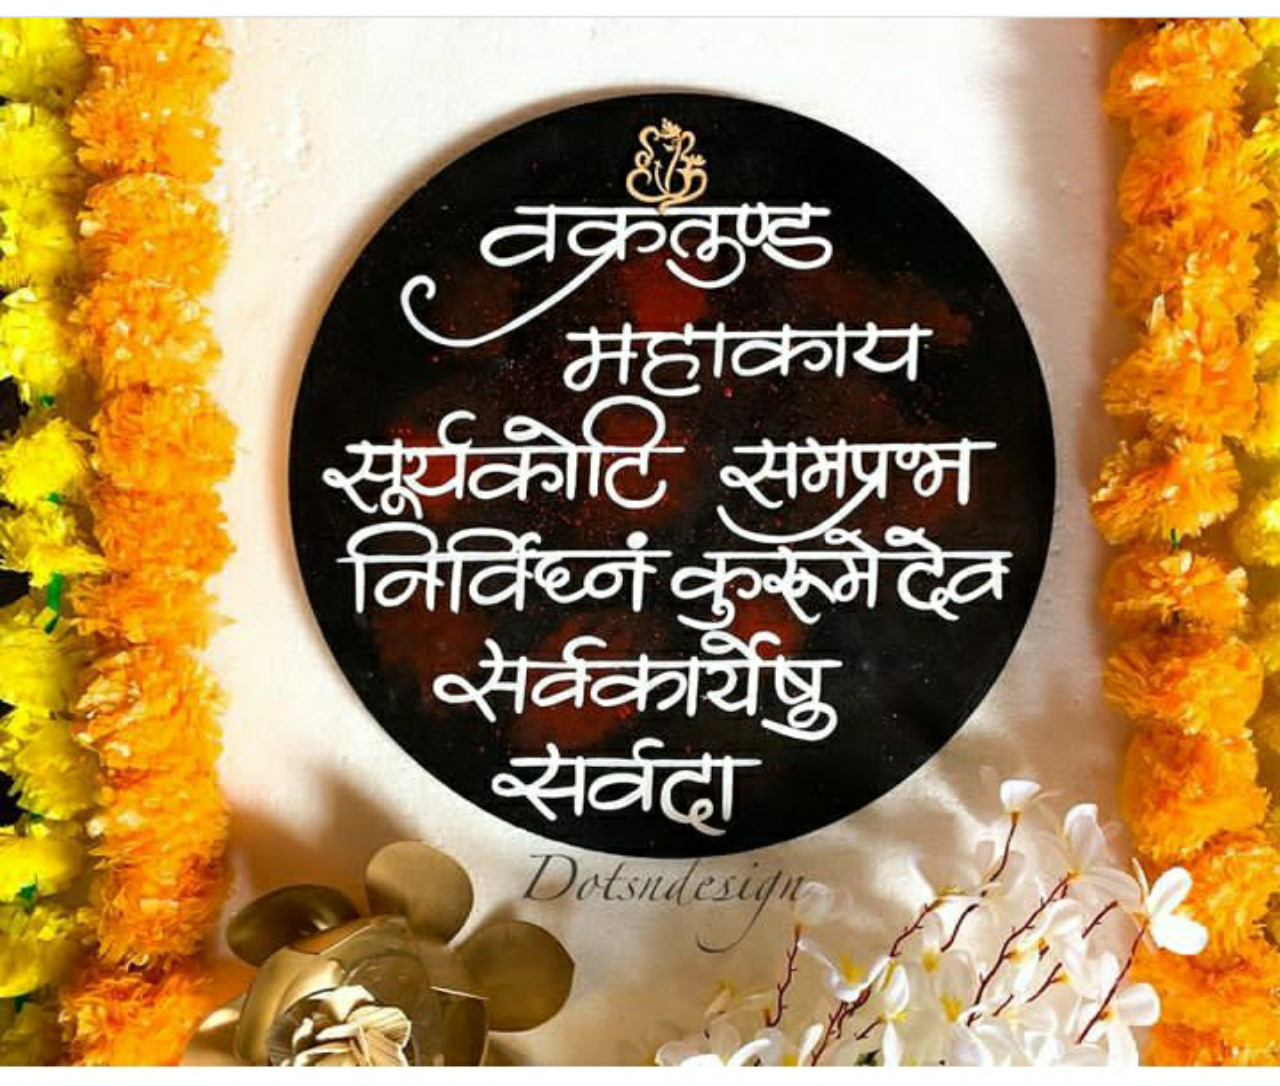 वक्रतुण्ड
महाकाय
सूर्यकोटि समप्रभ
निर्विघ्नं कुरूमे देव
सर्वकार्येषु
सर्वदा
Dotsndesign